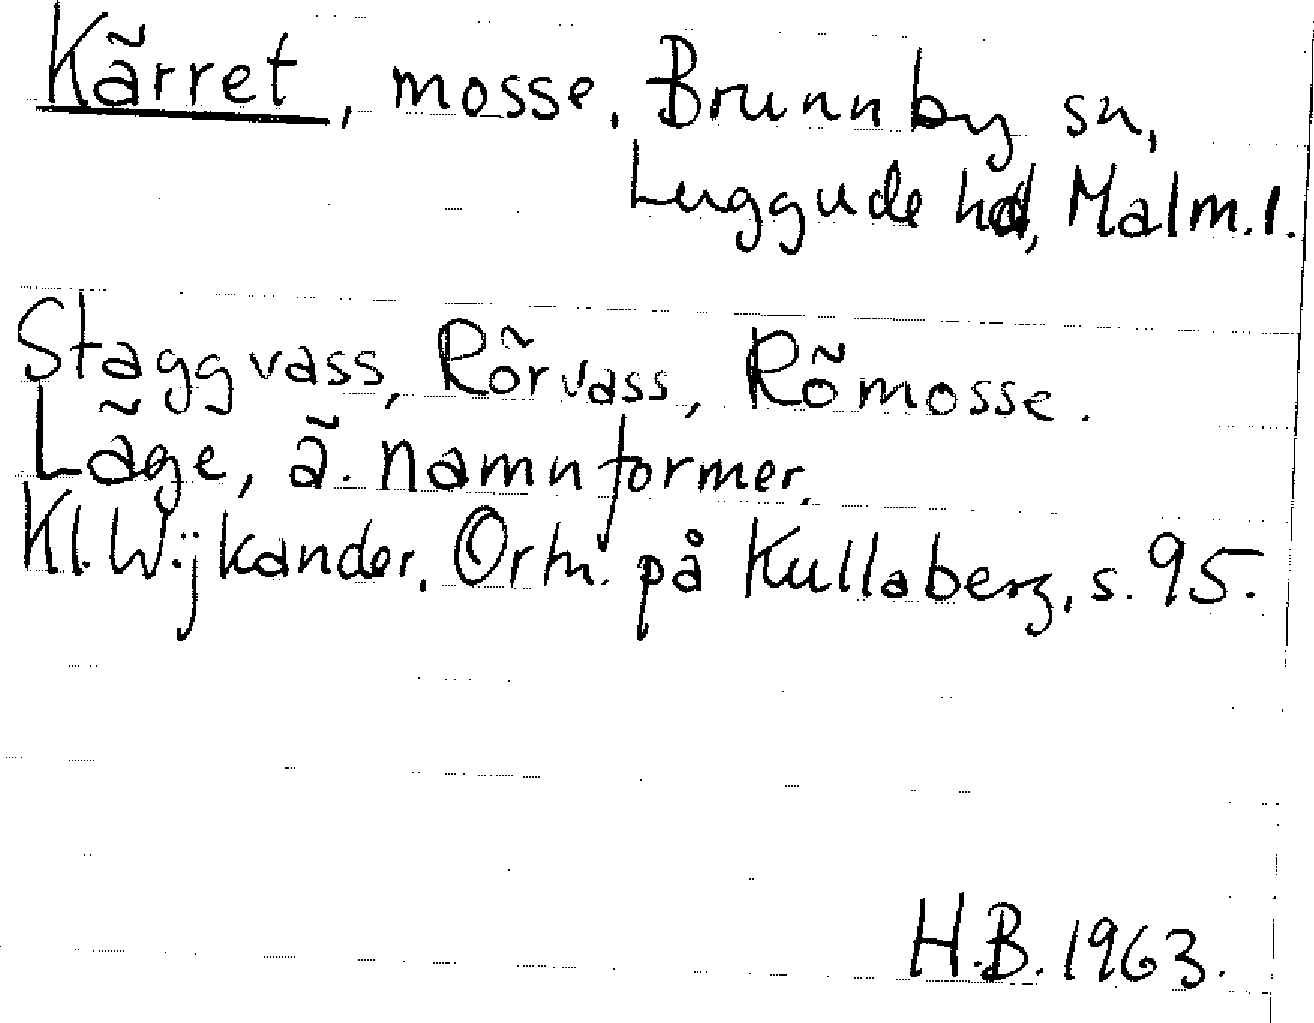 Kärret, mosse. Brunnby sn,
Luggude hd, Malm.l.
Staggvass, Rörvass, Römosse.
Läge, ä. namnformer.
Kl. Wijkander. Ortn. på Kullaberg, s. 95.
H.B. 1963.